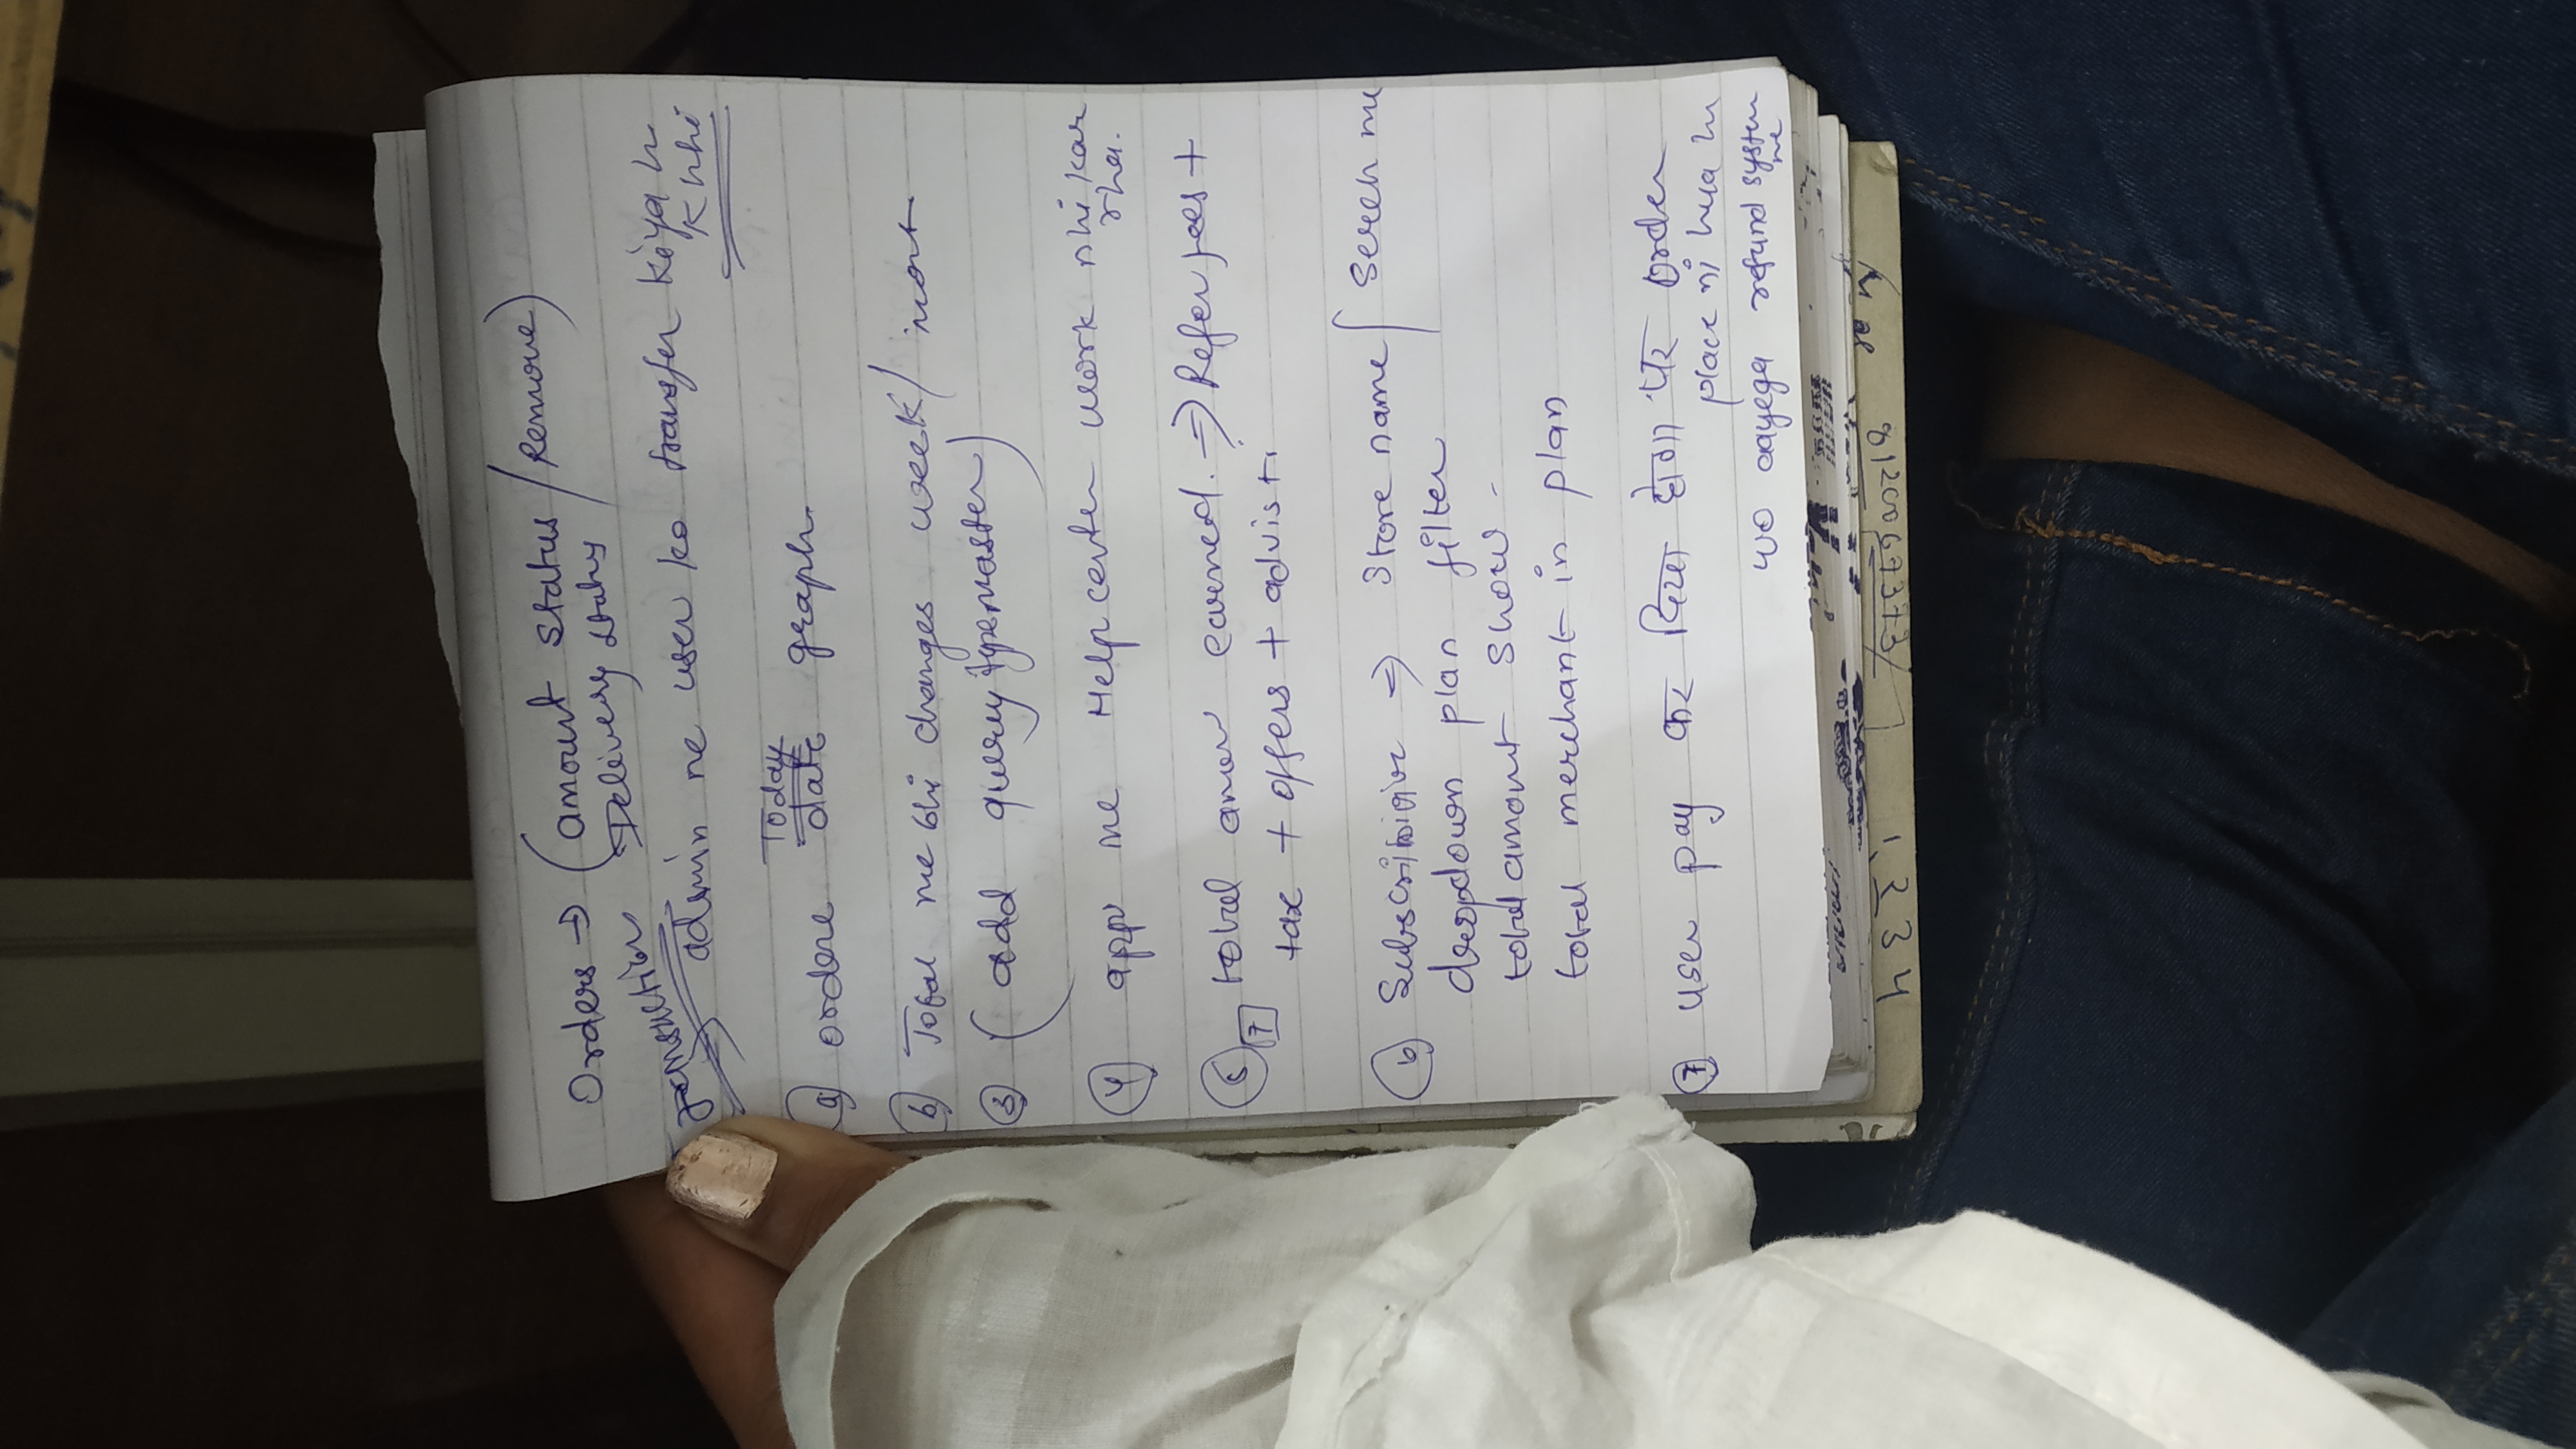 Orders → (amount status / Remove)
Delivery status
admin ne user ko transfer kiya h
K nhi
Today
a) ordere date graph
b) Total me bhi changes week /
3 (add query typemaster)
4 app me Help center work nhi kar
rha.
7 total earned. ⇒ Refer fees +
tax + offers + advisti
6 ⇒ Store name / Serch me
dropdown plan filter
total amount show -
total merchant in plan
7 user pay कर दिया होगा पर order
place ni hua h
wo aayega refund system
me
1 2 3 4